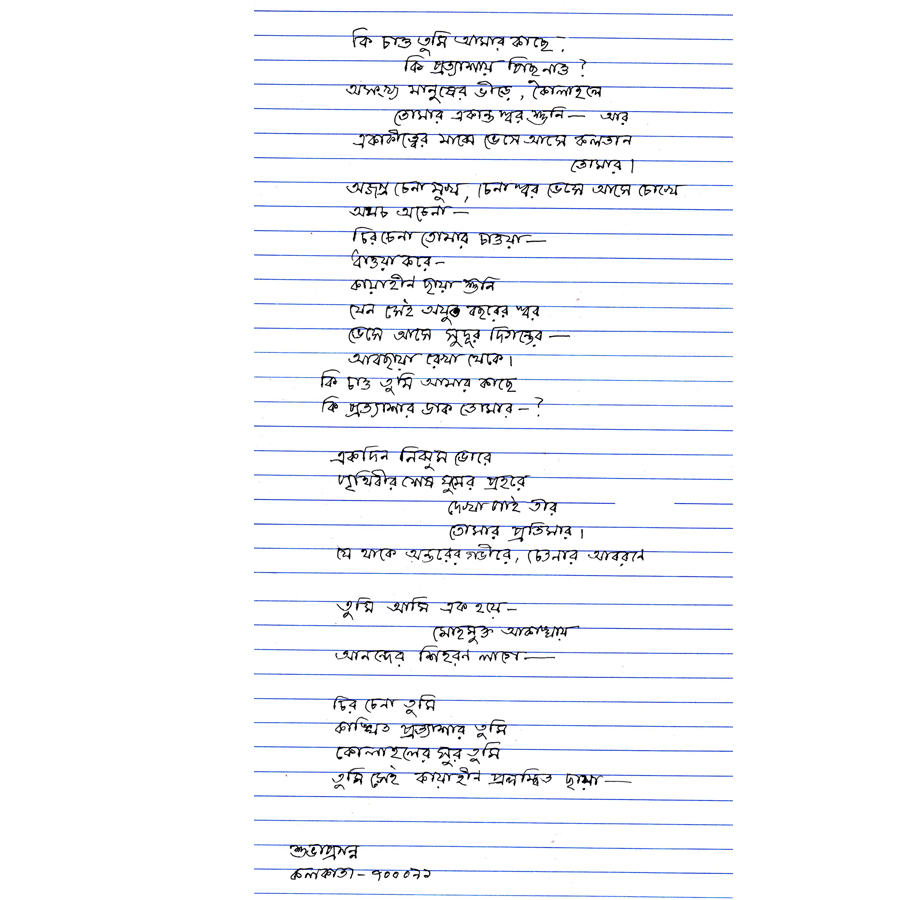 কি চাও তুমি আমার কাছে,
কি প্রত্যাশায় পিছু নাও ?
অসংখ্য মানুষের ভীড়ে, কোলাহলে
তোমার একান্ত স্বর শুনি — আর
একাকীত্বের মাঝে ভেসে আসে কলতান
তোমার।
অজস্র চেনা মুখ, চেনা স্বর ভেসে আসে চোখে
অথচ অচেনা —
চিরচেনা তোমার চাওয়া —
ধাওয়া করে —
কায়াহীন ছায়া শুনি
যেন সেই অযুত বছরের স্বর
ভেসে আসে সুদূর দিগন্তের —
আবছায়া রেখা থেকে।
কি চাও তুমি আমার কাছে
কি প্রত্যাশার ডাক তোমার — ?
একদিন নিঝুম ভোরে
পৃথিবীর শেষ ঘুমের প্রহরে
দেখা পাই তার
তোমার প্রতিমার।
যে থাকে অন্তরের গভীরে, চেতনার আবরনে
তুমি আমি এক হয়ে —
মোহমুক্ত আকাঙ্খায়
আনন্দের শিহরন লাগে —
চির চেনা তুমি
কাঙ্খিত প্রত্যাশার তুমি
কোলাহলের সুর তুমি
তুমি সেই কায়াহীন প্রলম্বিত ছায়া —
শুভাপ্রসন্ন
কলকাতা - ৭০০০৯১